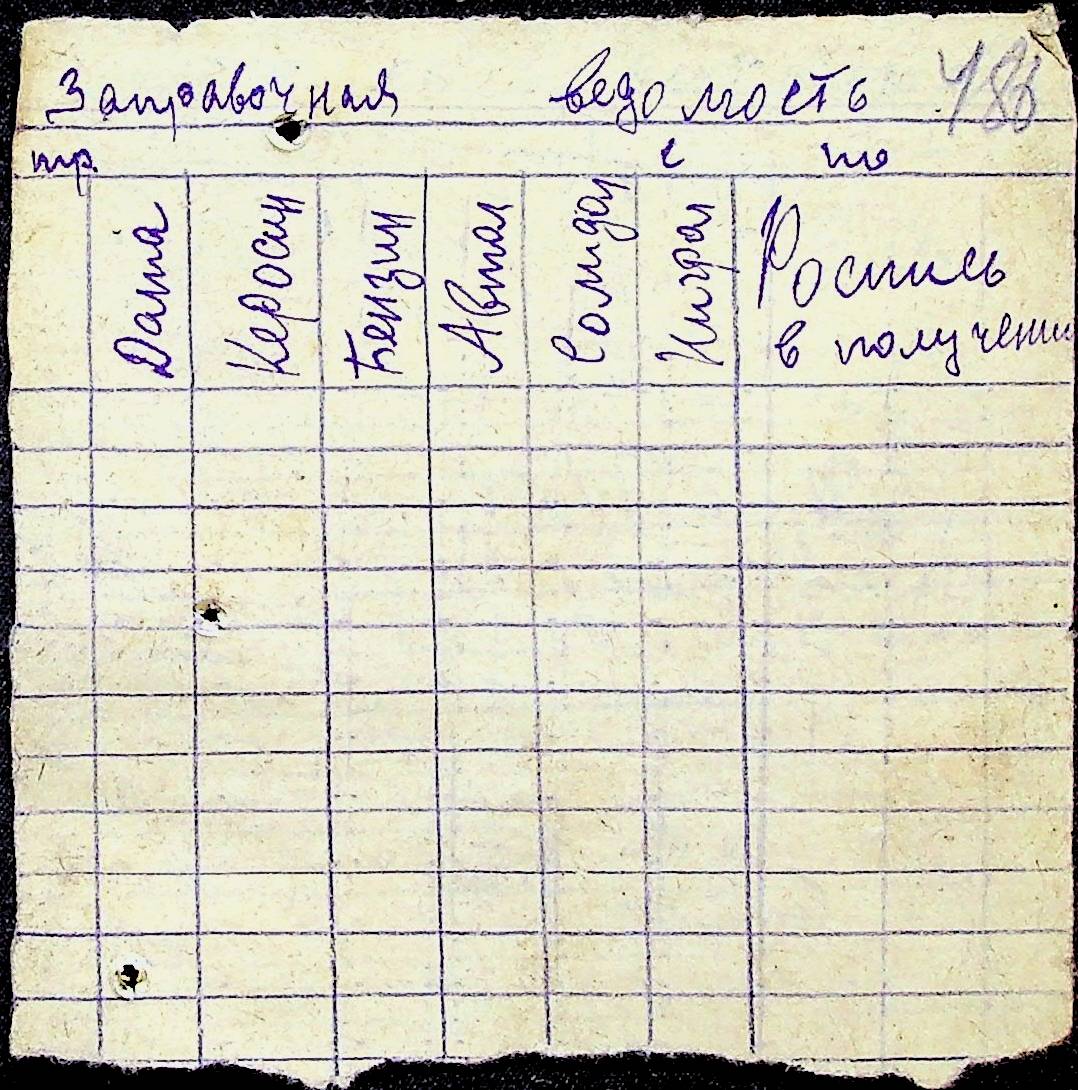 Заправочная ведомость 486
тр. с по
Дата Керосин Бензин Автол Солидол Нигрол Роспись
в получении